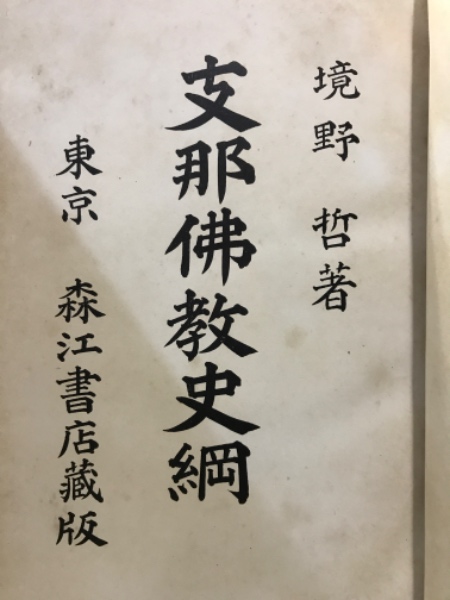 境野哲著
支那佛教史綱
東京 森江書店藏版